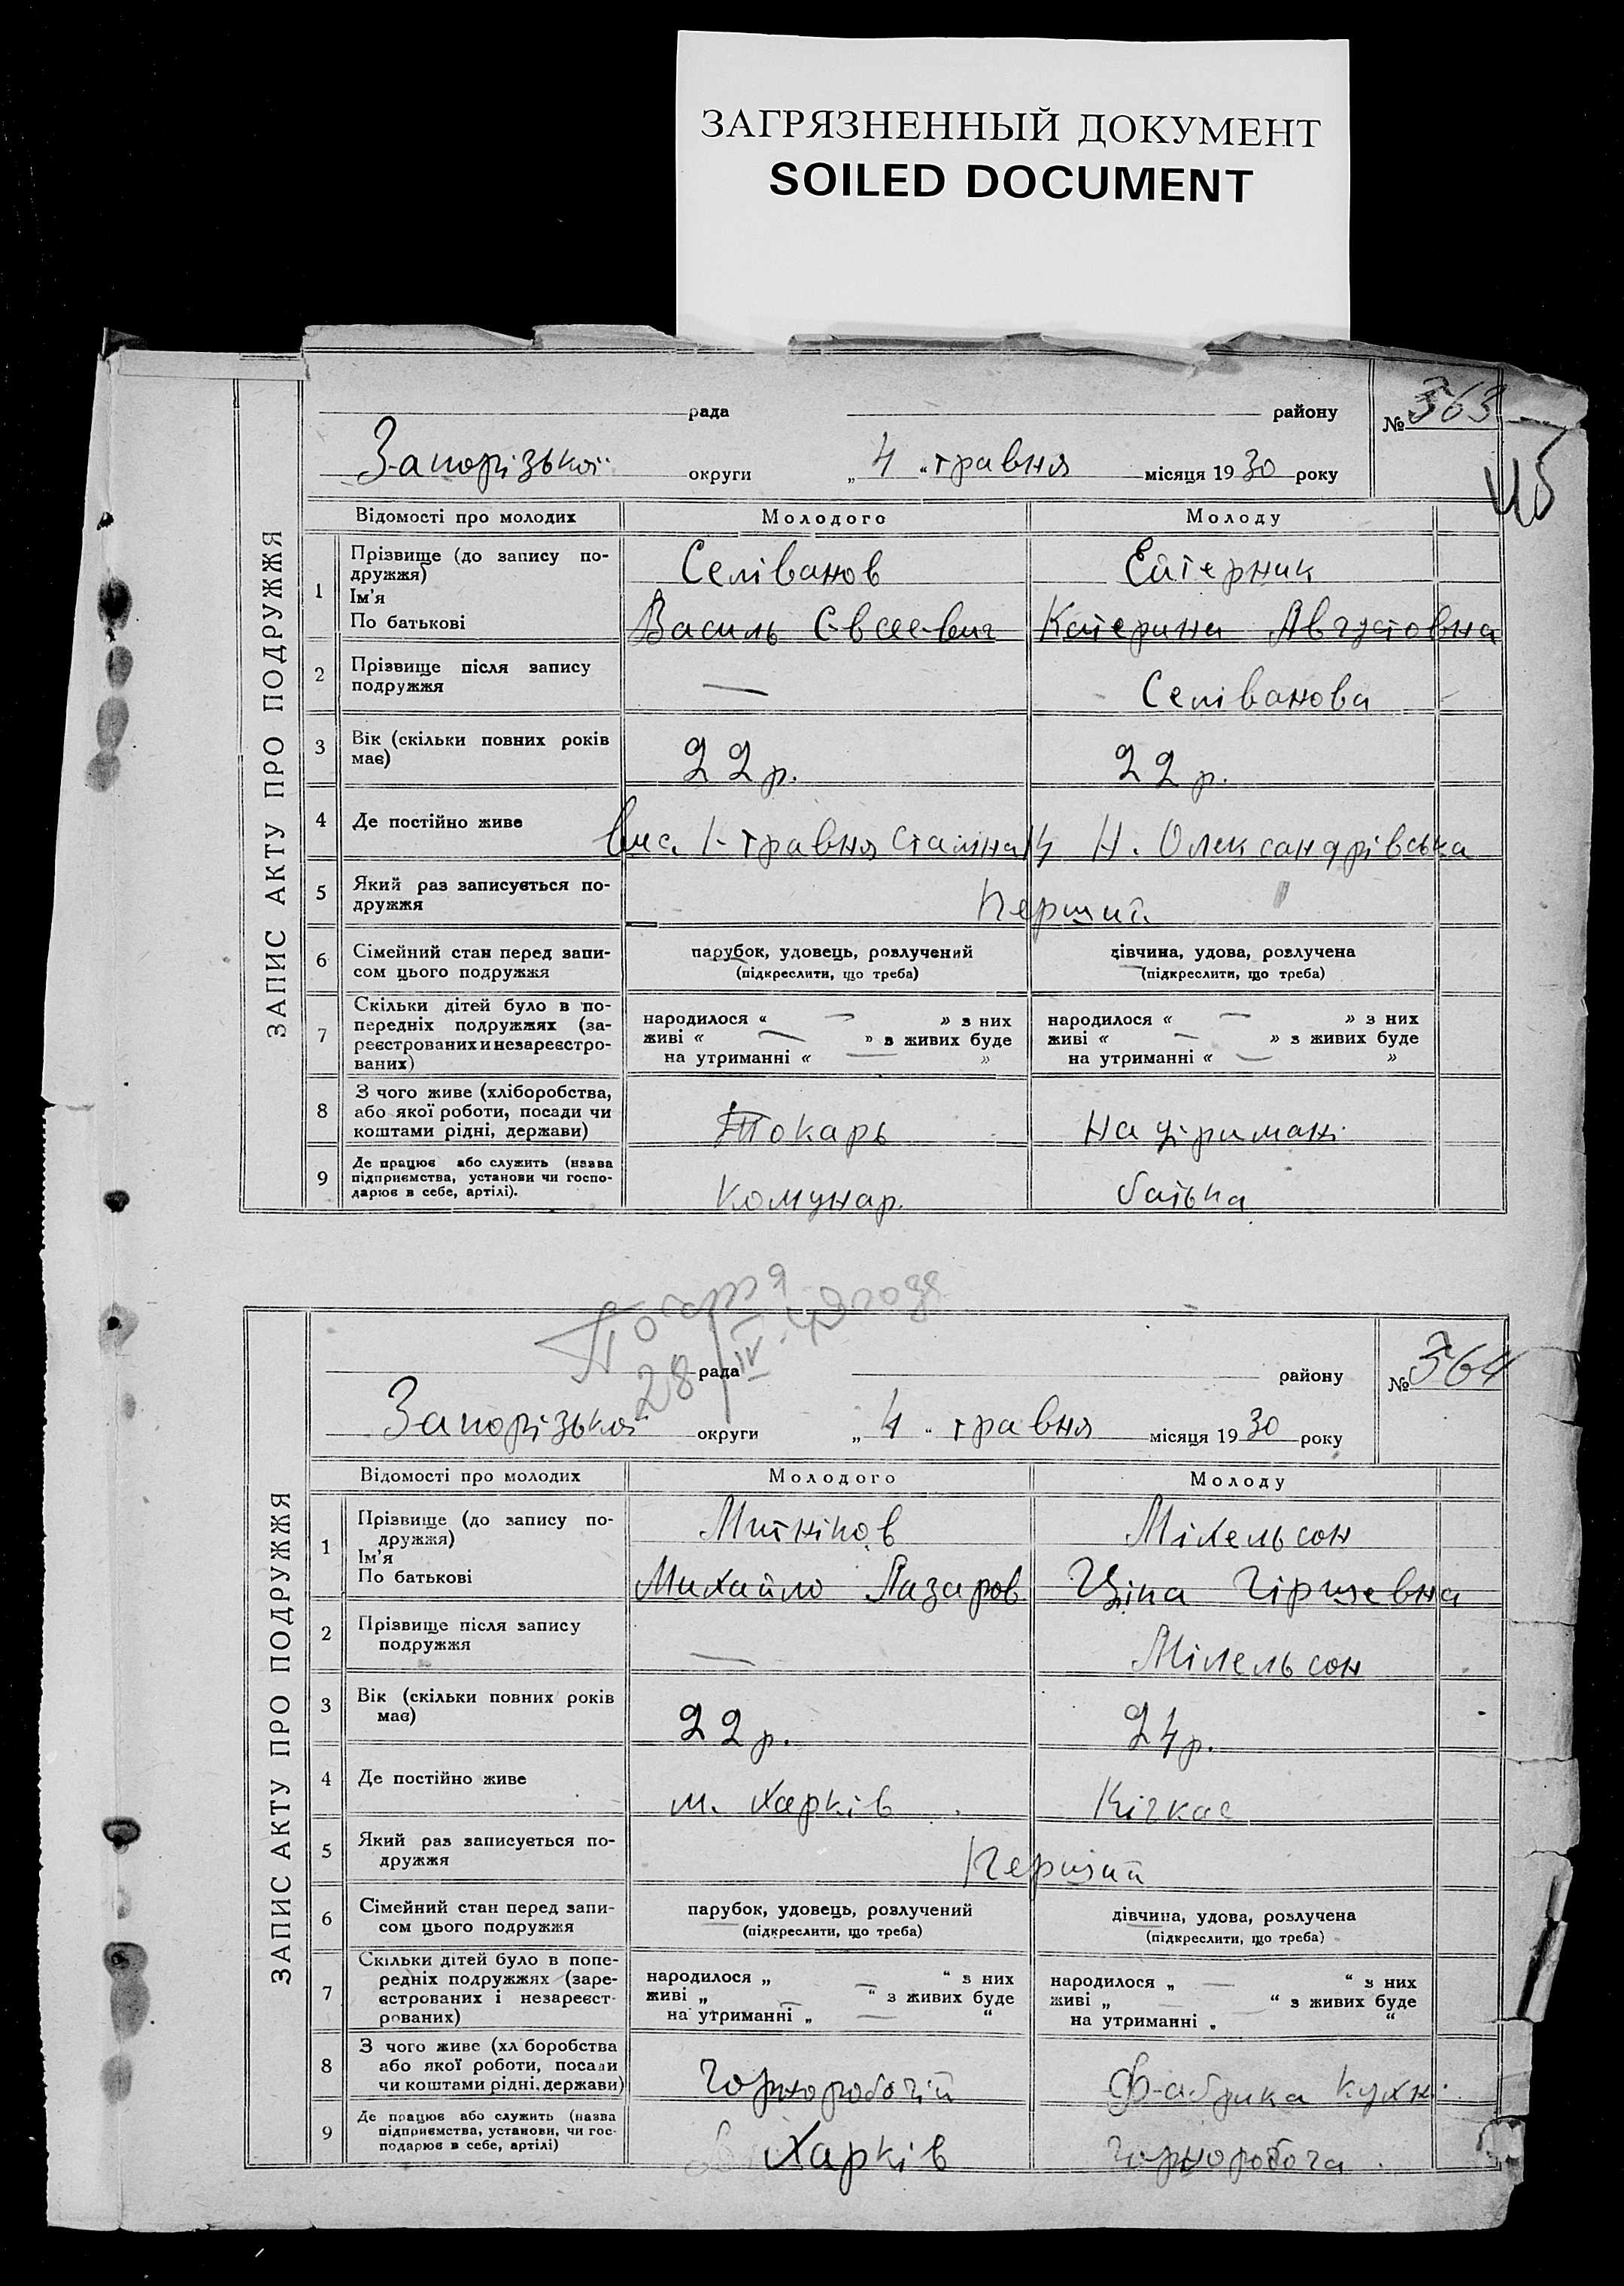 ЗАГРЯЗНЕННЫЙ ДОКУМЕНТ
SOILED DOCUMENT
ЗАПИС АКТУ ПРО ПОДРУЖЖЯ
рада району № 363
Запорізької округи „ 4 “ травня місяця 1930 року
45
Відомості про молодих Молодого Молоду
1 Прізвище (до запису по-
дружжя) Селіванов Ейтерник
Ім'я
По батькові Василь Євсеевич Катерина Августовна
2 Прізвище після запису
подружжя — Селіванова
3 Вік (скільки повних років
має) 22 р. 22 р.
4 Де постійно живе 1-травня Сталіна 14 Н. Олександрівська
5 Який раз записується по-
дружжя Перший
6 Сімейний стан перед запи-
сом цього подружжя
парубок, удовець, розлучений дівчина, удова, розлучена
(підкреслити, що треба) (підкреслити, що треба)
7 Скільки дітей було в по-
передніх подружжях (за-
реєстрованих и незареєстро-
ваних)
народилося « — » з них народилося « — » з них
живі « — » з живих буде живі « — » з живих буде
на утриманні « — » на утриманні « — »
8 З чого живе (хліборобства,
або якої роботи, посади чи
коштами рідні, держави) Токарь На утримані
9 Де працює або служить (назва
підприємства, установи чи госпо-
дарює в себе, артілі). Комунар. батька
28/IV
ЗАПИС АКТУ ПРО ПОДРУЖЖЯ
рада району № 364
Запорізької округи „ 4 “ травня місяця 1930 року
Відомості про молодих Молодого Молоду
1 Прізвище (до запису по-
дружжя) Митніков Міхельсон
Ім'я
По батькові Михайло Лазаров Ціпа Гіршевна
2 Прізвище після запису
подружжя — Міхельсон
3 Вік (скільки повних років
має) 22 р. 24 р.
4 Де постійно живе м. Харків Кічкас
5 Який раз записується по-
дружжя Перший
6 Сімейний стан перед запи-
сом цього подружжя
парубок, удовець, розлучений дівчина, удова, розлучена
(підкреслити, що треба) (підкреслити, що треба)
7 Скільки дітей було в попе-
редніх подружжях (заре-
єстрованих і незареєст-
рованих)
народилося „ — “ з них народилося „ — “ з них
живі „ — “ з живих буде живі „ — “ з живих буде
на утриманні „ — “ на утриманні „ “
8 З чого живе (хл боробства
або якої роботи, посади
чи коштами рідні, держави) Чорноробочій Фабрика Кухн.
9 Де працює або служить (назва
підприємства, установи, чи гос-
подарює в себе, артілі) Харків Чорноробоча